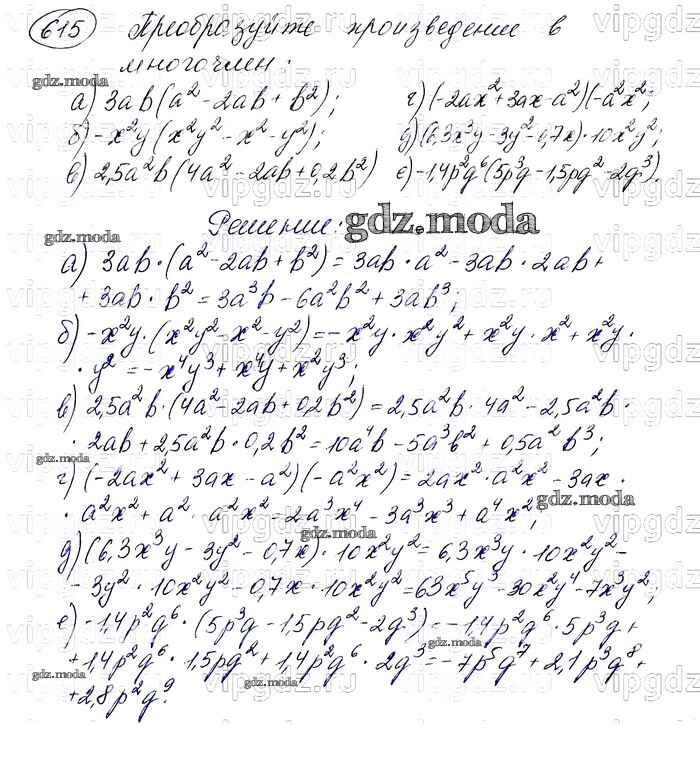 615 Преобразуйте произведение в
многочлен:
а) 3ab(a² - 2ab + b²);  г) (-2ax² + 3ax - a²)(-a²x²;
б) -x²y(x²y² - x² - y²);  д) (6,3x³y - 3y² - 0,7x)·10x²y²;
в) 2,5a²b(4a² - 2ab + 0,2b²)  е) -1,4p²g⁶(5p³g - 1,5pg² - 2g³).
Решение:
а) 3ab·(a² - 2ab + b²) = 3ab·a² - 3ab·2ab +
+ 3ab·b² = 3a³b - 6a²b² + 3ab³;
б) -x²y·(x²y² - x² - y²) = -x²y·x²y² + x²y·x² + x²y·
·y² = -x⁴y³ + x⁴y + x²y³;
в) 2,5a²b·(4a² - 2ab + 0,2b²) = 2,5a²b·4a² - 2,5a²b·
·2ab + 2,5a²b·0,2b² = 10a⁴b - 5a³b² + 0,5a²b³;
г) (-2ax² + 3ax - a²)(-a²x²) = 2ax²·a²x² - 3ax·
·a²x² + a²·a²x² = 2a³x⁴ - 3a³x³ + a⁴x²;
д) (6,3x³y - 3y² - 0,7x)·10x²y² = 6,3x³y·10x²y² -
- 3y²·10x²y² - 0,7x·10x²y² = 63x⁵y³ - 30x²y⁴ - 7x³y²;
е) -1,4p²g⁶·(5p³g - 1,5pg² - 2g³) = -1,4p²g⁶·5p³g +
+ 1,4p²g⁶·1,5pg² + 1,4p²g⁶·2g³ = -7p⁵g⁷ + 2,1p³g⁸ +
+ 2,8p²g⁹.
gdz.moda
gdz.moda
gdz.moda
gdz.moda
gdz.moda
gdz.moda
gdz.moda
gdz.moda
vipgdz.ru